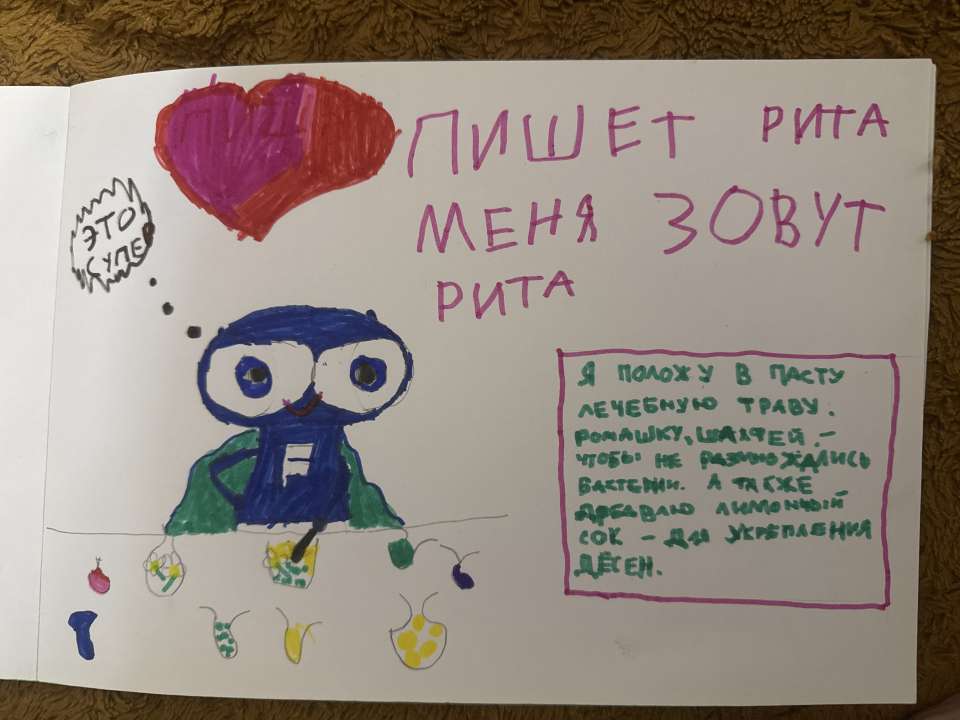 ПИШЕТ РИТА
МЕНЯ ЗОВУТ
РИТА
ЭТО
СУПЕ
Я ПОЛОЖУ В ПАСТУ
ЛЕЧЕБНУЮ ТРАВУ.
РОМАШКУ, ШАЛФЕЙ –
ЧТОБЫ НЕ РАЗМНОЖДАЛИСЬ
БАКТЕРИИ. А ТАКЖЕ
ДОБАВЛЮ ЛИМОННЫЙ
СОК – ДЛЯ УКРЕПЛЕНИЯ
ДЁСЕН.